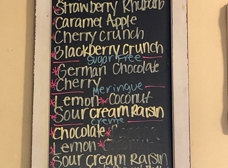 Strawberry Rhubarb
Caramel Apple
Cherry crunch
Blackberry crunch
Sugar Free
*German Chocolate
*Cherry
Meringue
Lemon * Coconut
Sour cream Raisin
Creme
Chocolate *
Lemon
Sour cream Raisin